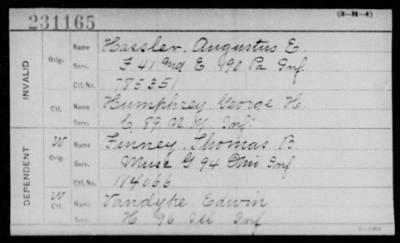 231165
(3-H-4)
INVALID
Orig.
Name Hassler, Augustus E.
Serv. F 41 and E 190 Pa Inf.
Ctf. No. 785351
Ctf.
Name Humphrey George H.
Serv. C. 89 N.Y. Inf
DEPENDENT
W
Orig.
Name Finney, Thomas B.
Serv. Musc G 94 Ohio Inf
Ctf. No. 184066
W
Ctf.
Name Vandyke, Edwin
Serv. H 96 Ill Inf